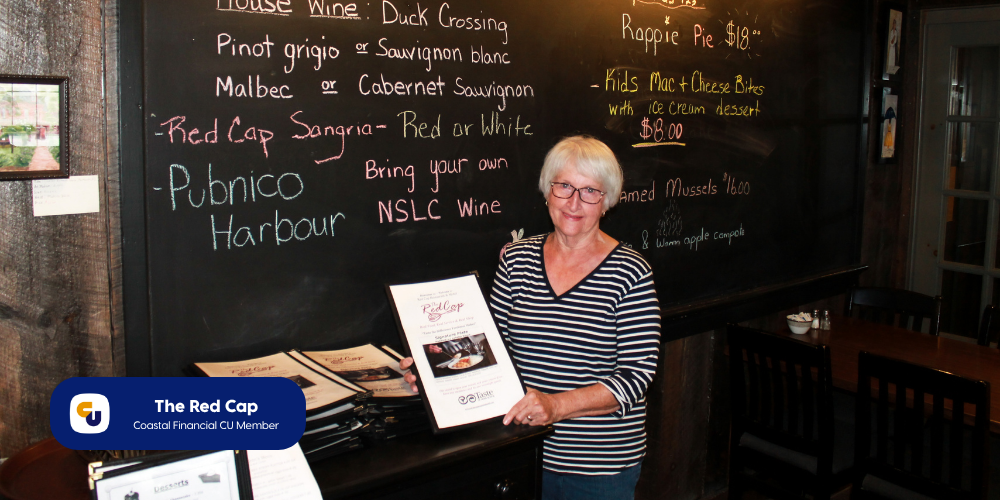 House Wine: Duck Crossing
Pinot grigio or Sauvignon blanc
Malbec or Cabernet Sauvignon
- Red Cap Sangria - Red or White
- Pubnico
Harbour
Bring your own
NSLC Wine
Rappie Pie $18.00
- Kids Mac + Cheese Bites
with ice cream dessert
$8.00
amed Mussels $16.00
& Warm apple compote
The
Red Cap
Red Cap
Red Cap
Taste
Desserts
CU
The Red Cap
Coastal Financial CU Member